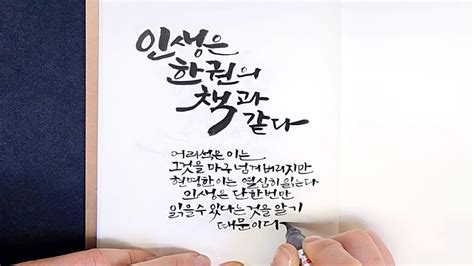 인생은
한권의
책과
같다
어리석은 이는
그것을 마구 넘겨버리지만
현명한 이는 열심히 읽는다
인생은 단 한번만
읽을수 있다는 것을 알기
때문이다